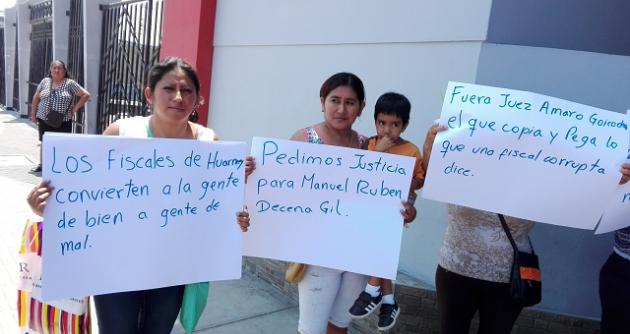 Los Fiscales de Huarmey
convierten a la gente
de bien a gente de
mal.
Pedimos Justicia
para Manuel Ruben
Decena Gil.
Fuera Juez Amaro
el que copia y Pega lo
que una fiscal corrupta
dice.